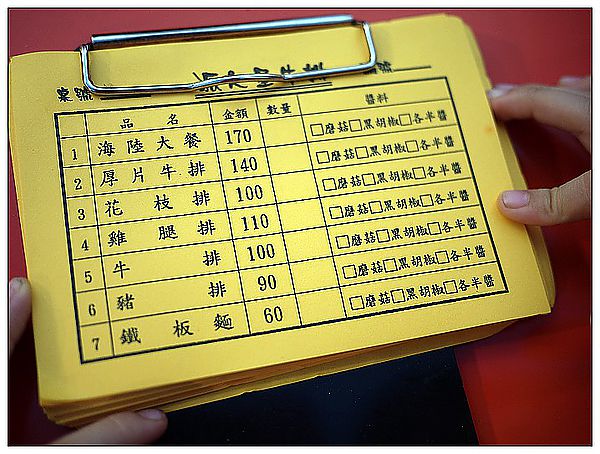 桌號
品名 金額 數量 醬料
1 海陸大餐 170 □磨菇□黑胡椒□各半醬
2 厚片牛排 140 □磨菇□黑胡椒□各半醬
3 花枝排 100 □磨菇□黑胡椒□各半醬
4 雞腿排 110 □磨菇□黑胡椒□各半醬
5 牛排 100 □磨菇□黑胡椒□各半醬
6 豬排 90 □磨菇□黑胡椒□各半醬
7 鐵板麵 60 □磨菇□黑胡椒□各半醬